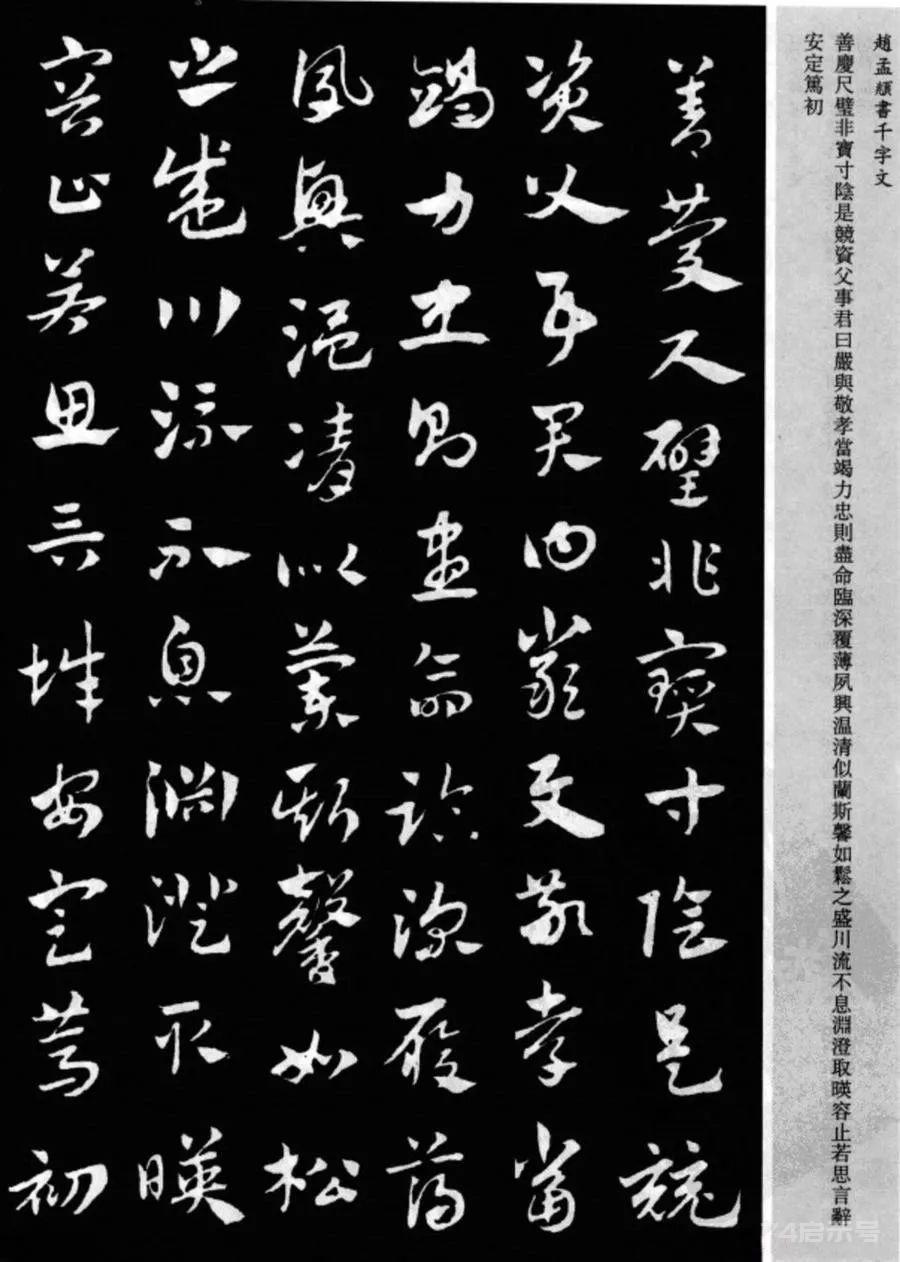 趙孟頫書千字文
善慶尺璧非寶寸陰是競資父事君曰嚴與敬孝當竭力忠則盡命臨深覆薄夙興温清似蘭斯馨如鬆之盛川流不息淵澄取暎容止若思言辭
安定篤初
善慶尺璧非寶寸陰是競
資父事君曰嚴與敬孝當
竭力忠則盡命臨深履薄
夙興温凊似蘭斯馨如松
之盛川流不息淵澄取暎
容止若思言辭安定篤初
74启示号